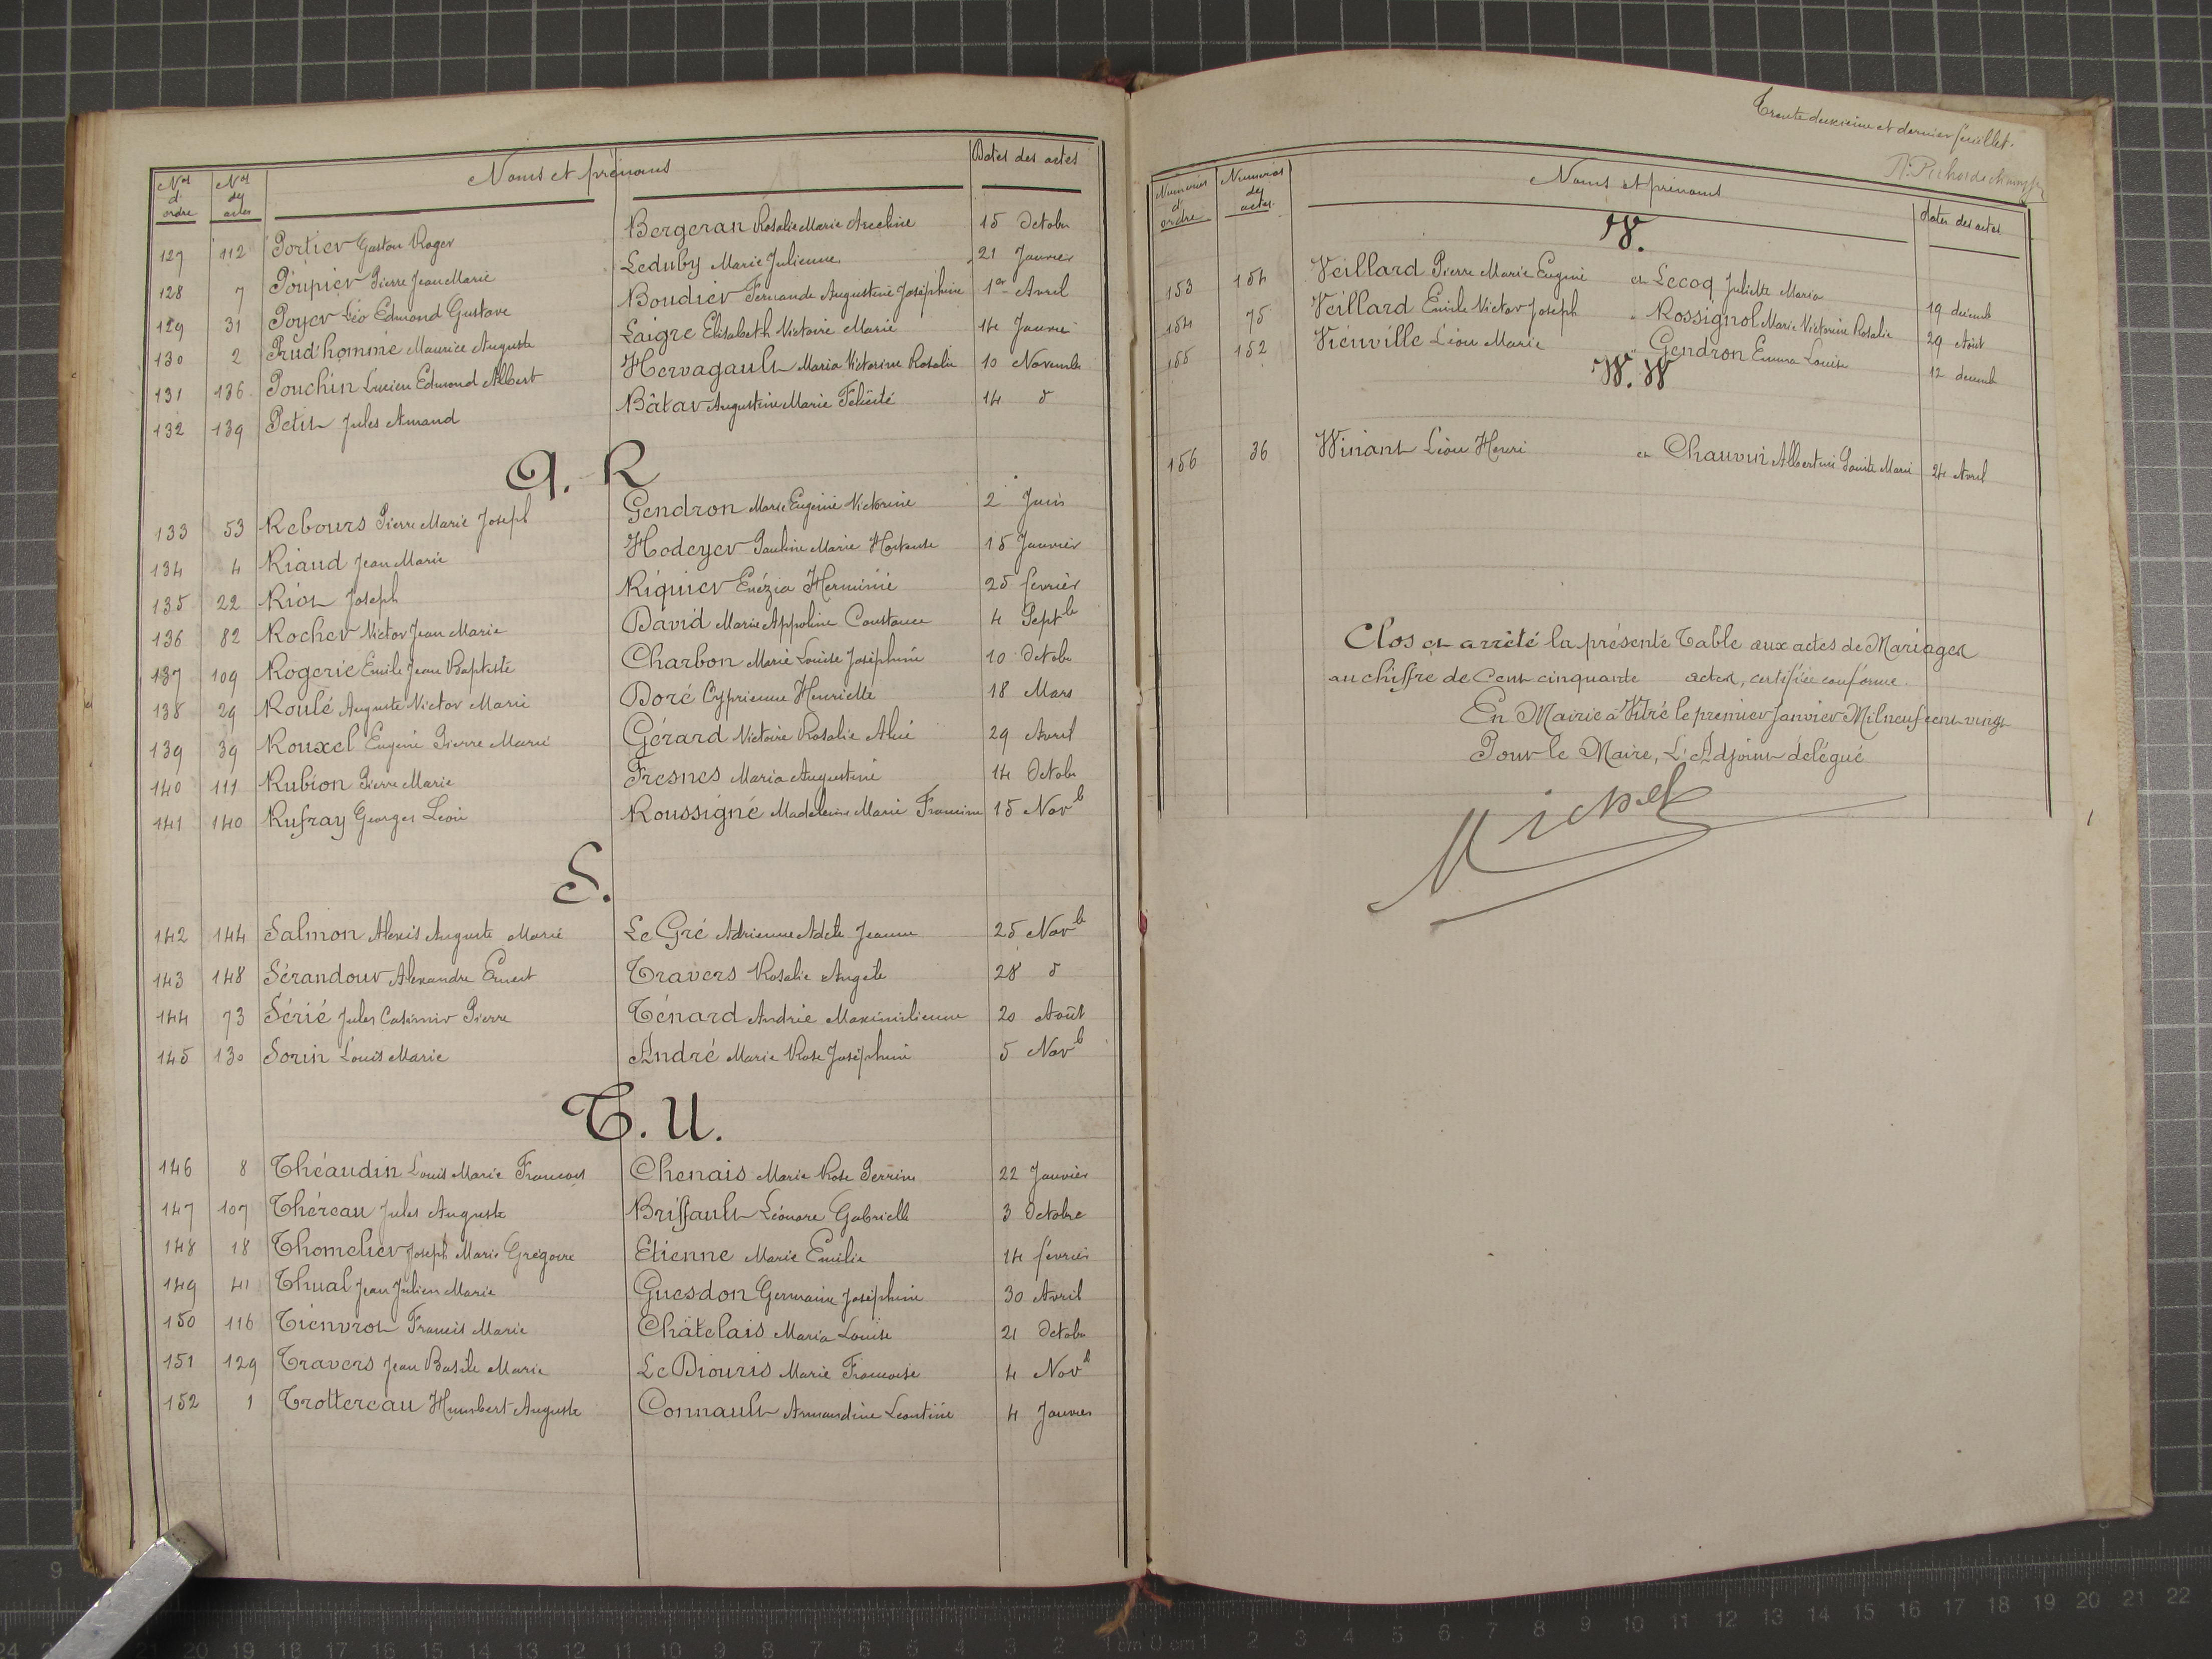 Nos d' ordre | Nos des actes | Noms et prénoms | Dates des actes
127 | 112 | Portier Gaston Roger | Bergeran Rosalie Marie Anceline | 15 Octobre
128 | 7 | Poupier Pierre Jean Marie | Leduby Marie Julienne | 21 Janvier
129 | 31 | Poyer Léo Edmond Gustave | Boudier Fernande Augustine Joséphine | 1er Avril
130 | 2 | Prud'homme Maurice Auguste | Laigre Elisabeth Victoire Marie | 14 Janvier
131 | 136 | Pouchin Lucien Edmond Albert | Hervagault Maria Victorine Rosalie | 10 Novembre
132 | 139 | Petit Jules Amand | Bâtar Augustine Marie Félicité | 14 d
Q. R
133 | 53 | Rebours Pierre Marie Joseph | Gendron Marie Eugénie Victorine | 2 Juin
134 | 4 | Riaud Jean Marie | Hodeyer Pauline Marie Hortense | 15 Janvier
135 | 22 | Riot Joseph | Riquier Enézia Herminie | 25 février
136 | 82 | Rocher Victor Jean Marie | David Marie Appoline Constance | 4 Septbe
137 | 109 | Rogerie Emile Jean Baptiste | Charbon Marie Louise Joséphine | 10 Octobe
138 | 29 | Roulé Auguste Victor Marie | Doré Cyprienne Henriette | 18 Mars
139 | 39 | Rouxel Eugène Pierre Marie | Gérard Victoire Rosalie Aimé | 29 Avril
140 | 111 | Rubion Pierre Marie | Fresnes Maria Augustine | 14 Octobe
141 | 140 | Rufray Georges Léon | Roussigné Madeleine Marie Francine | 15 Novb
S.
142 | 144 | Salmon Alexis Auguste Marie | Le Gré Adrienne Adèle Jeanne | 25 Novb
143 | 148 | Sérandour Alexandre Ernest | Travers Rosalie Angèle | 28 d
144 | 73 | Sérié Jules Casimir Pierre | Ténard Andrée Maximilienne | 20 Août
145 | 130 | Sorin Louis Marie | André Marie Rose Joséphine | 5 Novb
T. U.
146 | 8 | Théaudin Louis Marie François | Chenais Marie Rose Perrine | 22 Janvier
147 | 107 | Théreau Jules Auguste | Briffault Léonore Gabrielle | 3 Octobre
148 | 18 | Thomelier Joseph Marie Grégoire | Etienne Marie Emilie | 14 février
149 | 41 | Thual Jean Julien Marie | Guesdon Germaine Joséphine | 30 Avril
150 | 116 | Tienvrot Francis Marie | Châtelais Maria Louise | 21 Octobe
151 | 129 | Travers Jean Basile Marie | Le Diouris Marie Françoise | 4 Novb
152 | 1 | Trottereau Humbert Auguste | Connault Armandine Léontine | 4 Janvier
Trente deuxième et dernier feuillet.
Numéros d' ordre | Numéros des actes | Noms et prénoms | Dates des actes
V.
153 | 154 | Veillard Pierre Marie Eugène | et Lecoq Juliette Maria | 19 décemb
154 | 75 | Veillard Emile Victor Joseph | " Rossignol Marie Victorine Rosalie | 29 Août
155 | 152 | Vieuville Léon Marie | " Gendron Emma Louise | 12 décemb
W. W
156 | 36 | Winant Léon Henri | et Chauvin Albertine Sainte Marie | 24 Avril
Clos et arrêté la présente Table aux actes de Mariages
au chiffre de Cent cinquante actes, certifiée conforme.
En Mairie à Vitré le premier Janvier Mil neuf cent vingt
Pour le Maire, L'Adjoint délégué
Michel
9
24 21 20 19 18 17 16 15 14 13 12 11 10 9 8 7 6 5 4 3 2 1 cm 0 cm 1 2 3 4 5 6 7 8 9 10 11 12 13 14 15 16 17 18 19 20 21 22